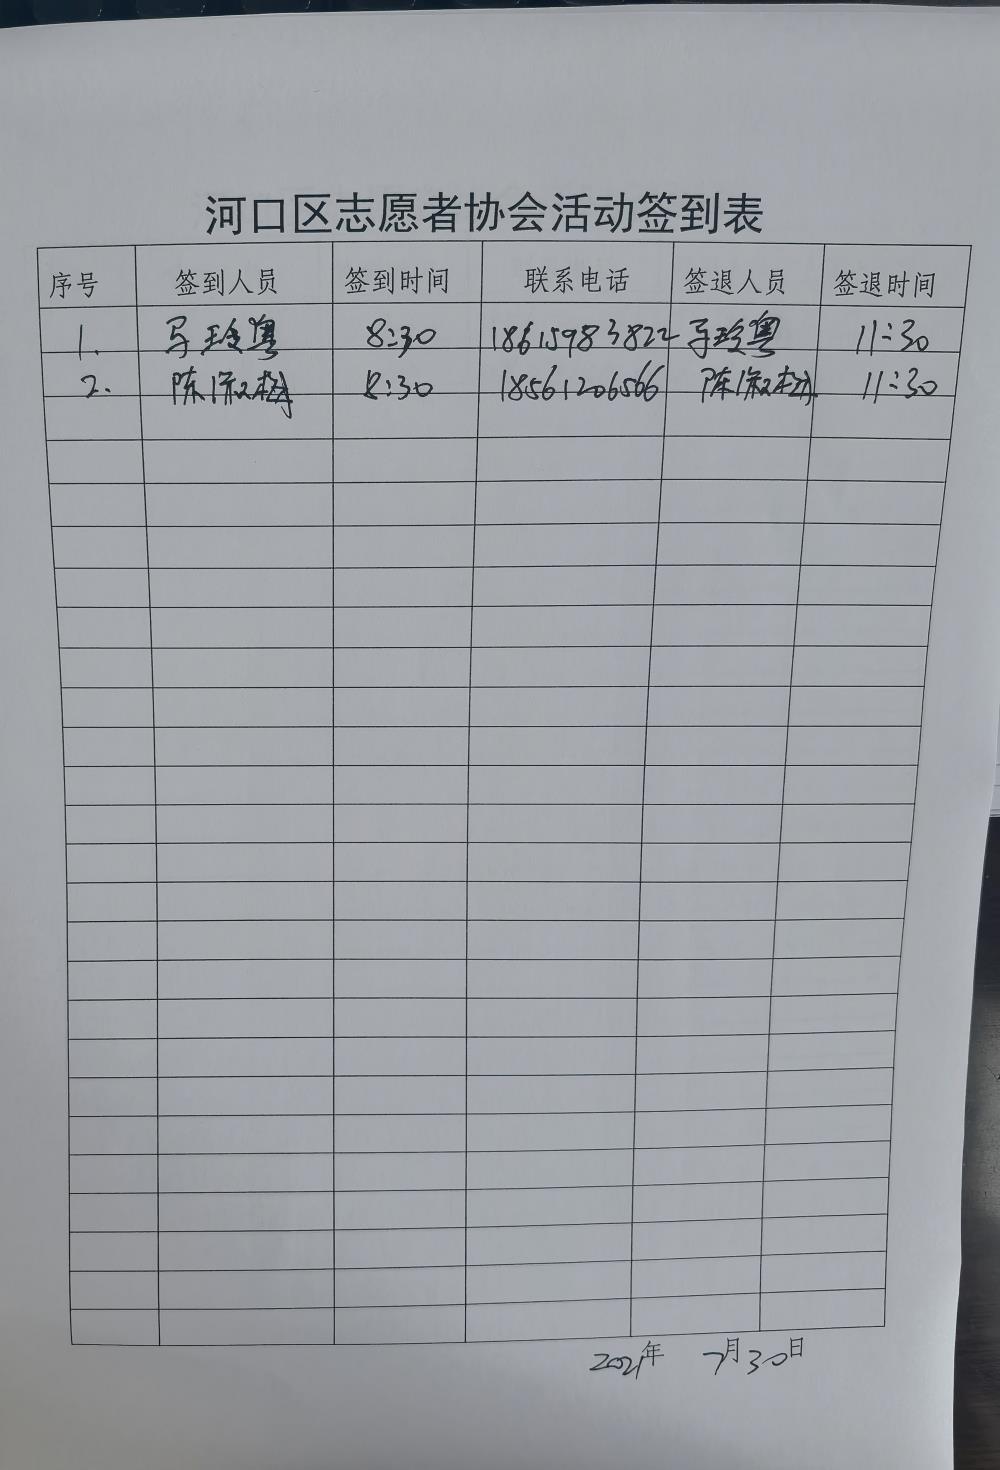 河口区志愿者协会活动签到表
序号 签到人员 签到时间 联系电话 签退人员 签退时间
1. 马玲粤 8:30 18615983822 马玲粤 11:30
2. 陈淑梅 8:30 18561206566 陈淑梅 11:30
2021年 7月30日